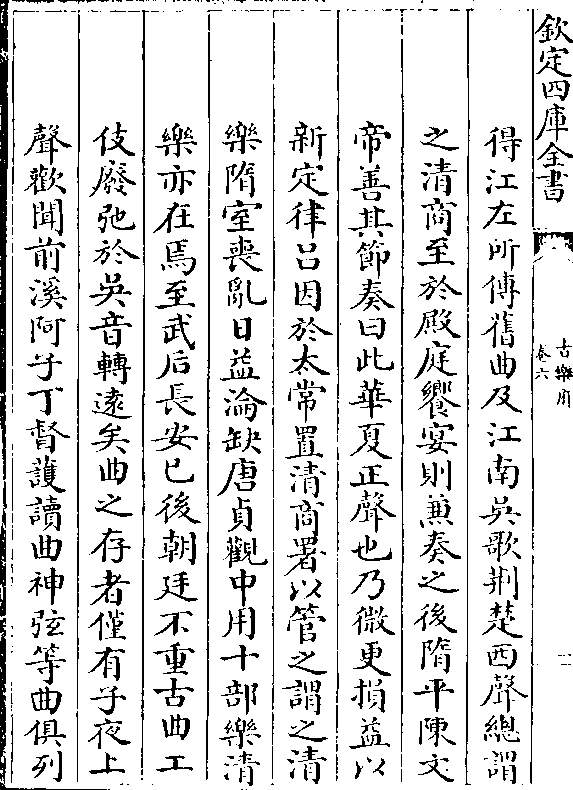 欽定四庫全書
古樂府
卷六
得江左所傳舊曲及江南吳歌荆楚西聲總謂
之清商至於殿庭饗宴則兼奏之後隋平陳文
帝善其節奏曰此華夏正聲也乃微更損益以
新定律吕因於太常置清商署以管之謂之清
樂隋室喪亂日益淪缺唐貞觀中用十部樂清
樂亦在焉至武后長安已後朝廷不重古曲工
伎廢弛於吳音轉逺矣曲之存者僅有子夜上
聲歡聞前溪阿子丁督護讀曲神弦等曲俱列